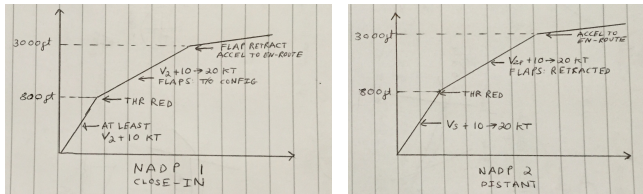 3000ft
FLAP RETRACT
ACCEL TO EN-ROUTE
V2+10→20 KT
FLAPS: T/O CONFIG
800ft
THR RED
AT LEAST
V2+10 KT
NADP 1
CLOSE-IN
3000ft
ACCEL TO
EN-ROUTE
VZF+10→20 KT
FLAPS: RETRACTED
800ft
THR RED
V5 + 10→20 KT
NADP 2
DISTANT